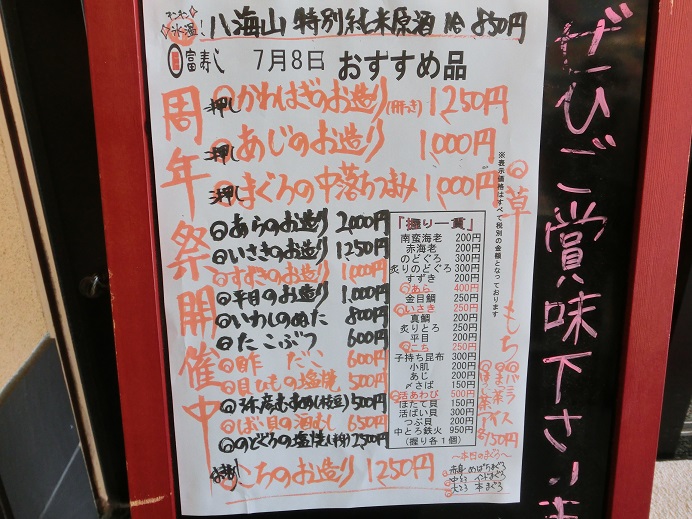 八海山 特別純米原酒 850円
富寿し 7月8日 おすすめ品
周年祭開催中
押し かわはぎのお造り(肝つき) 1250円
押し あじのお造り 1,000円
押し まぐろの中落ちつまみ 1,000円
あらのお造り 2,000円
いさきのお造り 1250円
すずきのお造り 1,000円
平目のお造り 1,000円
いわしのぬた 800円
たこぶつ 600円
酢だこ 600円
貝ひもの塩焼 500円
(枝豆) 500円
ばい貝の酒むし 650円
のどぐろの塩焼 2500円
こちのお造り 1250円
「握り一貫」
南蛮海老 200円
赤海老 200円
のどぐろ 300円
炙りのどぐろ 300円
すずき 200円
あら 400円
金目鯛 250円
いさき 250円
真鯛 200円
炙りとろ 250円
平目 200円
こち 250円
子持ち昆布 300円
小肌 200円
あじ 200円
〆さば 150円
活あわび 500円
ほたて貝 150円
活ばい貝 300円
つぶ貝 200円
中とろ鉄火 950円
(握り各1個)
※表示価格はすべて税別の金額となっております
草もち
バニラ
アイス
150円
~本日のまぐろ~
赤身 めばちまぐろ
中とろ インドまぐろ
大とろ 本まぐろ
ぜひご賞味下さいま